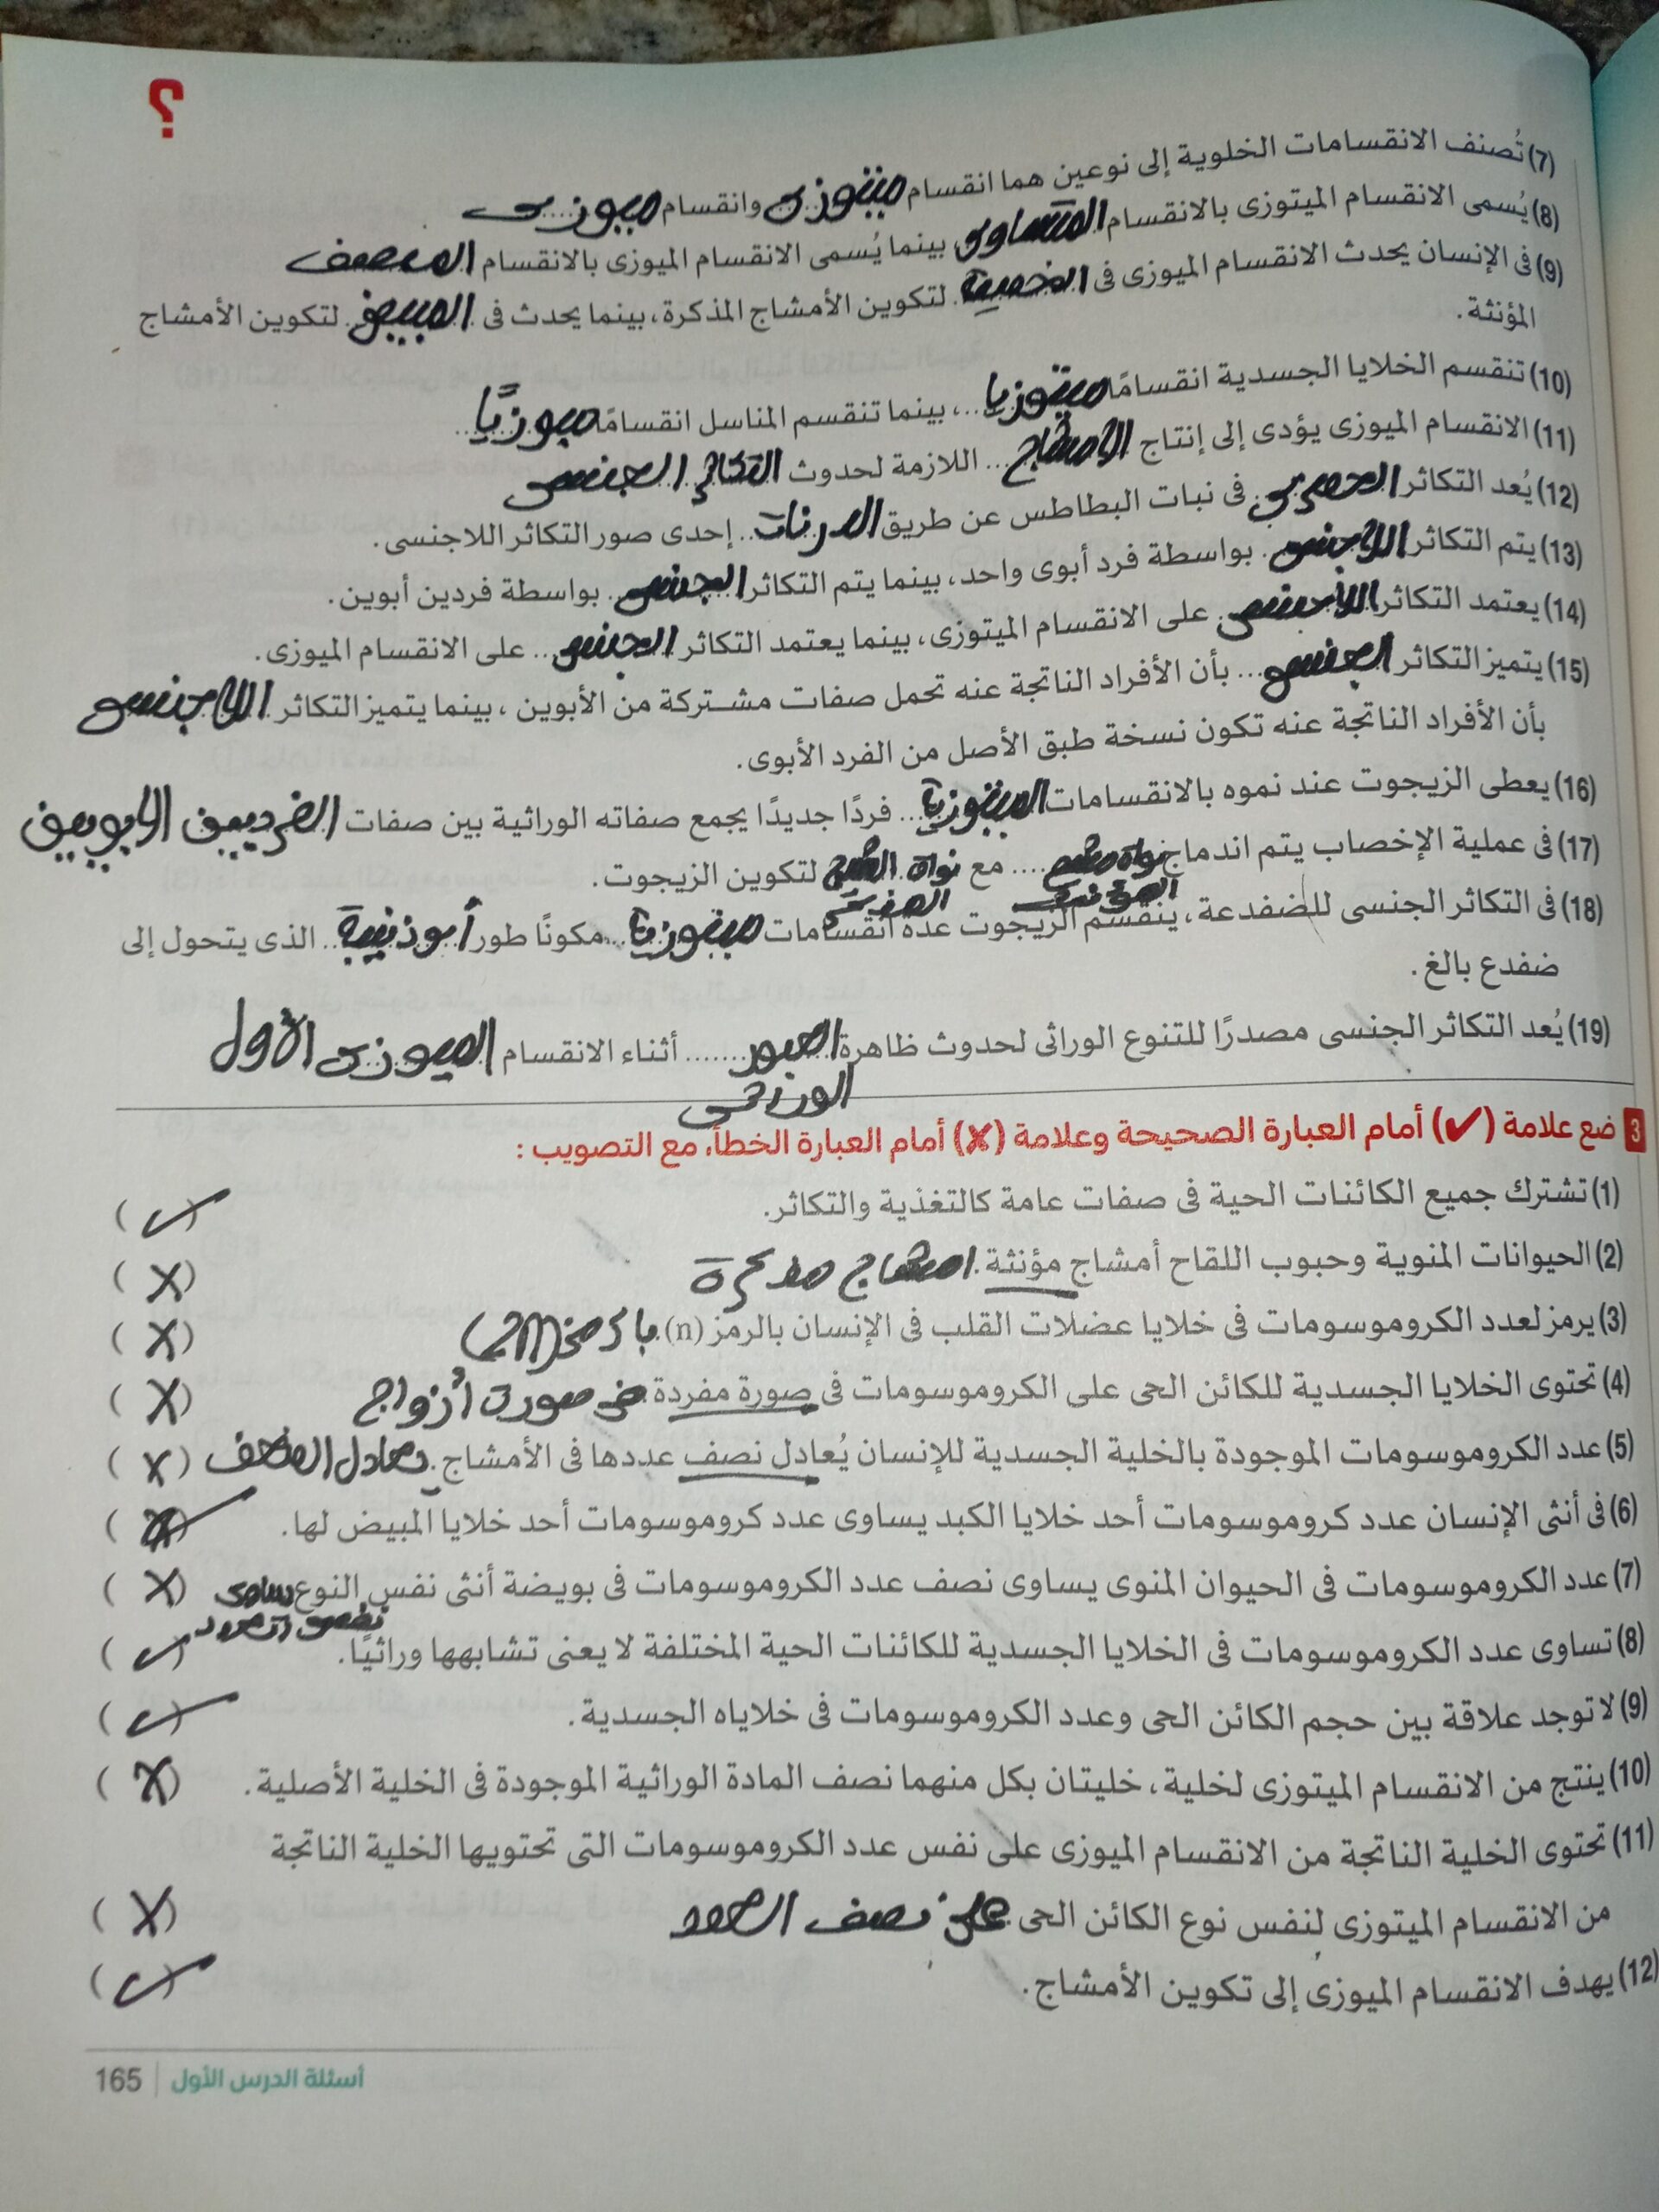 ؟
(7) تُصنف الانقسامات الخلوية إلى نوعين هما انقسام ميتوزى وانقسام ميوزى
(8) يُسمى الانقسام الميتوزى بالانقسام المتساوى بينما يُسمى الانقسام الميوزى بالانقسام المنصف
(9) فى الإنسان يحدث الانقسام الميوزى فى الخصية لتكوين الأمشاج المذكرة، بينما يحدث فى المبيض لتكوين الأمشاج
المؤنثة.
(10) تنقسم الخلايا الجسدية انقسامًا ميتوزيا ....، بينما تنقسم المناسل انقسامًا ميوزيًا
(11) الانقسام الميوزى يؤدى إلى إنتاج الأمشاج ... اللازمة لحدوث التكاثر الجنسى
(12) يُعد التكاثر الخضرى فى نبات البطاطس عن طريق الدرنات .. إحدى صور التكاثر اللاجنسى.
(13) يتم التكاثر اللاجنسى . بواسطة فرد أبوى واحد، بينما يتم التكاثر الجنسى .. بواسطة فردين أبوين.
(14) يعتمد التكاثر اللاجنسى . على الانقسام الميتوزى، بينما يعتمد التكاثر الجنسى ... على الانقسام الميوزى.
(15) يتميز التكاثر الجنسى ... بأن الأفراد الناتجة عنه تحمل صفات مشتركة من الأبوين، بينما يتميز التكاثر اللاجنسى
بأن الأفراد الناتجة عنه تكون نسخة طبق الأصل من الفرد الأبوى.
(16) يعطى الزيجوت عند نموه بالانقسامات الميتوزية ... فردًا جديدًا يجمع صفاته الوراثية بين صفات الفردين الأبويين
(17) فى عملية الإخصاب يتم اندماج نواة مشيج .... مع نواة المشيج لتكوين الزيجوت.
المؤنث المذكر
(18) فى التكاثر الجنسى للضفدعة، ينقسم الزيجوت عدة انقسامات ميتوزية ... مكونًا طور أبو ذنيبة .. الذى يتحول إلى
ضفدع بالغ.
(19) يُعد التكاثر الجنسى مصدرًا للتنوع الوراثى لحدوث ظاهرة العبور ....... أثناء الانقسام الميوزى الأول
الوراثى
3 ضع علامة (✓) أمام العبارة الصحيحة وعلامة (✗) أمام العبارة الخطأ، مع التصويب :
(1) تشترك جميع الكائنات الحية فى صفات عامة كالتغذية والتكاثر. (✓)
(2) الحيوانات المنوية وحبوب اللقاح أمشاج مؤنثة. امشاج مذكرة (X)
(3) يرمز لعدد الكروموسومات فى خلايا عضلات القلب فى الإنسان بالرمز (n). بالرمز (2n) (X)
(4) تحتوى الخلايا الجسدية للكائن الحى على الكروموسومات فى صورة مفردة. فى صورة أزواج (X)
(5) عدد الكروموسومات الموجودة بالخلية الجسدية للإنسان يُعادل نصف عددها فى الأمشاج. يعادل الضعف (X)
(6) فى أنثى الإنسان عدد كروموسومات أحد خلايا الكبد يساوى عدد كروموسومات أحد خلايا المبيض لها. (✓)
(7) عدد الكروموسومات فى الحيوان المنوى يساوى نصف عدد الكروموسومات فى بويضة أنثى نفس النوع يساوى (X)
نفس العدد
(8) تساوى عدد الكروموسومات فى الخلايا الجسدية للكائنات الحية المختلفة لا يعنى تشابهها وراثيًا. (✓)
(9) لا توجد علاقة بين حجم الكائن الحى وعدد الكروموسومات فى خلاياه الجسدية. (✓)
(10) ينتج من الانقسام الميتوزى لخلية، خليتان بكل منهما نصف المادة الوراثية الموجودة فى الخلية الأصلية. (X)
(11) تحتوى الخلية الناتجة من الانقسام الميوزى على نفس عدد الكروموسومات التى تحتويها الخلية الناتجة
من الانقسام الميتوزى لنفس نوع الكائن الحى. على نصف العدد (X)
(12) يهدف الانقسام الميوزى إلى تكوين الأمشاج. (✓)
أسئلة الدرس الأول | 165